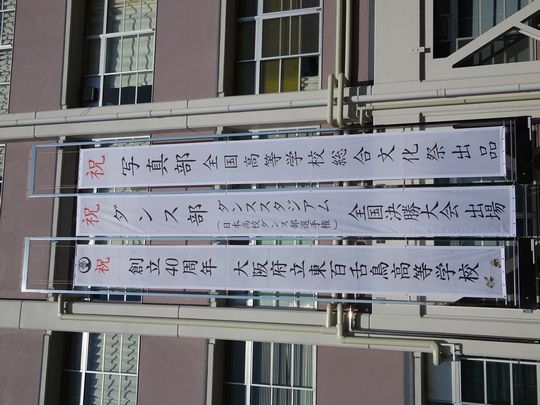 祝 写真部 全国高等学校総合文化祭出品
祝 ダンス部 ダンススタジアム 全国決勝大会 出場
(日本高校ダンス部選手権)
祝 創立40周年 大阪府立東百舌鳥高等学校